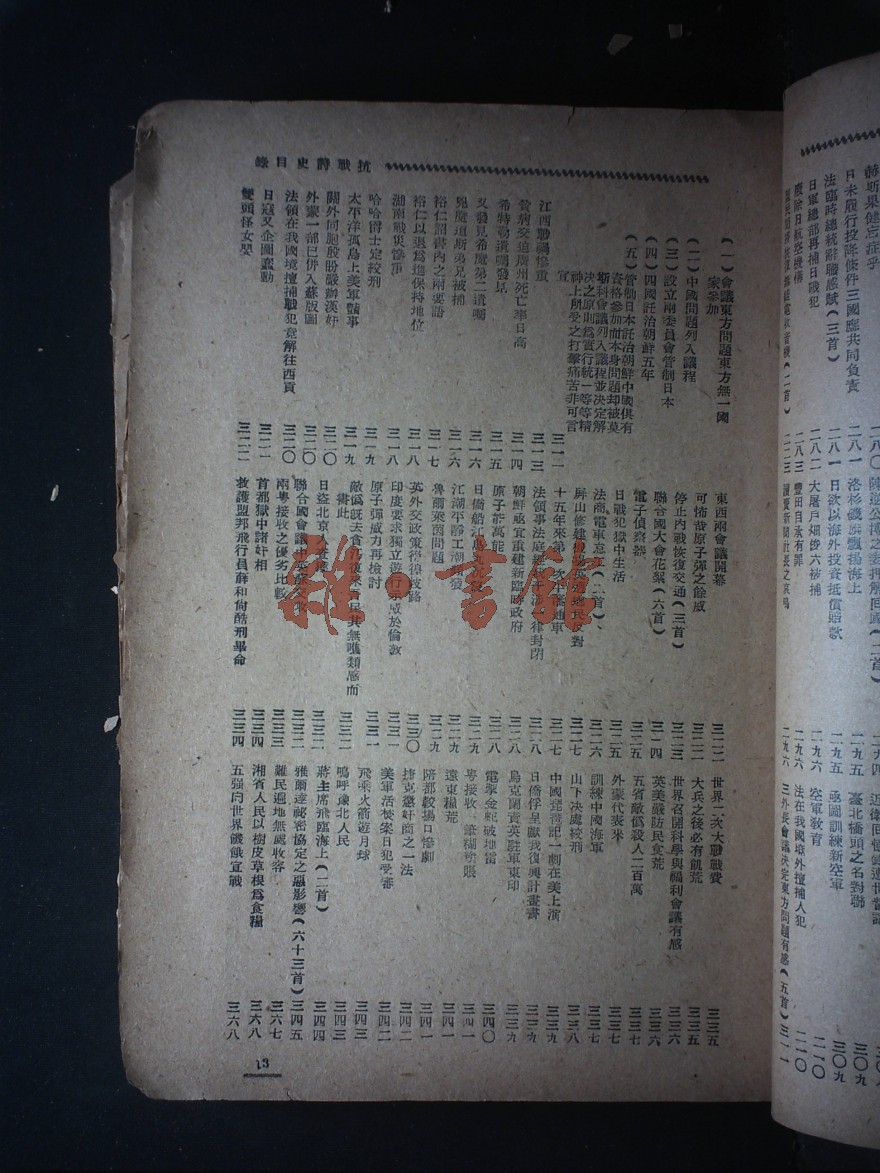 抗戰詩史目錄
（一）會議東方問題東方無一國
家參加
（二）中國問題列入議程
（三）設立兩委員會管制日本
（四）四國託治朝鮮五年
（五）管制日本託治朝鮮中國俱有
資格參加而本身問題却被莫
斯科會議列入議程並決定解
決之原則為實行統一等等精
神上所受之打擊痛苦非可言
宣 三一二
江西戰禍慘重 三一三
貧病交迫廣州死亡率日高 三一四
希特勒遺囑發見 三一五
又發見希魔第二遺囑 三一六
兇魔道斯弟兄被捕 三一六
裕仁詔書內之兩要語 三一七
裕仁以退為進保持地位 三一八
湖南戰災慘重 三一八
哈哈博士定絞刑 三一九
太平洋孤島上美軍豔事 三一九
關外同胞股盼嚴辦漢奸 三二〇
外蒙一部已併入蘇版圖 三二〇
法領在我國境擅捕戰犯竟解往西貢 三二〇
日寇又企圖蠢動 三二一
雙頭怪女嬰 三二二
東西兩會議開幕 三二二
可怖哉原子彈之餘威 三二二
停止內戰恢復交通（三首） 三二三
聯合國大會花絮（六首） 三二四
電子偵察器 三二五
日戰犯獄中生活 三二五
法商電車怠工（二首） 三二六
屏山修建機場英遭鄉民反對 三二七
十五年來第一次平瀋通車 三二七
法領事法庭 律封閉 三二八
朝鮮亟宜重建新臨時政府 三二八
原子能萬能 三二九
日僑船江 三二九
江潮平靜工潮 發 三二九
魯爾萊茵問題 三二九
英外交政策徬徨歧路 三三〇
印度要求獨立遊行示威於倫敦 三三一
原子彈威力再檢討 三三一
敵偽既去貪污復來吾民其無噍類感而
書此 三三二
日盜北京人 三三二
聯合國會議中英蘇交 三三二
兩粵接收之優劣比較 三三三
首都獄中諸奸相 三三四
救護盟邦飛行員薛和尚酷刑畢命 三三四
世界二次大戰戰費 三三五
大兵之後必有飢荒 三三五
世界召開科學與福利會議有感 三三六
英美嚴防民食荒 三三六
五省敵偽殺人二百萬 三三七
外蒙代表來 三三七
訓練中國海軍 三三七
山下決處絞刑 三三八
中國琵琶記一劇在美上演 三三九
日僑俘呈獻我復興計畫書 三三九
烏克蘭責英駐軍東印 三三九
電擊金靶破地雷 三四〇
粵接收、 糊塗賬 三四一
遠東糧荒 三四一
陪都較場口慘劇 三四一
捷克懲奸商之一法 三四二
美軍活焚案日犯受審 三四二
飛乘火箭遊月球 三四三
嗚呼豫北人民 三四三
蔣主席飛臨海上（二首） 三四四
雅爾達祕密協定之惡影響（六十三首） 三四五
難民遍地無處收容 三六七
湘省人民以樹皮草根為食糧 三六八
五強向世界饑餓宣戰 三六八
13
赫斯果健忘症乎
日未履行投降條件三國應共同負責
法臨時總統辭職感賦（三首）
日軍總部再捕日戰犯
廢除日航空機構
二八〇
二八一
二八一
二八二
二八三
陳逆公博之妻押解回國（二首）
洛杉磯旗飄揚海上
日欲以海外投資抵償賠款
大屠戶畑俊六被捕
豐田自承有罪
二九四
二九五
二九六
二九六
臺北橋頭之名對聯
亟圖訓練新空軍
空軍教育
法在我國境外擅捕人犯
三外長會議決定東方問題有感（五首） 三一一
三〇九
三〇九